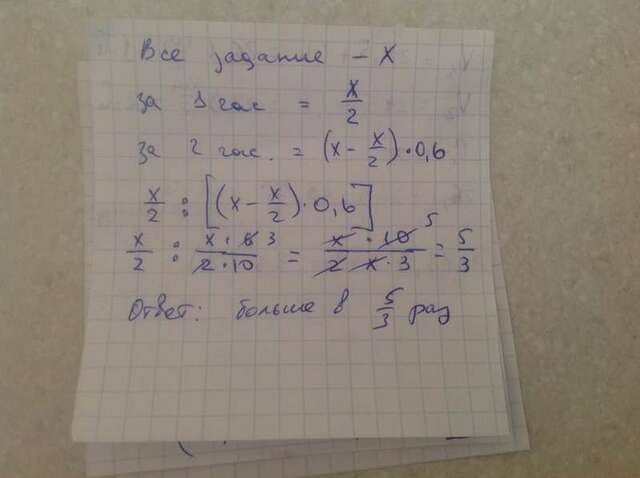 Все задание - X
за 1 час = x/2
за 2 час. = (x - x/2)·0,6
x/2 : [(x - x/2)·0,6]
x/2 : x·6 3/2·10 = x·10 5/2 x·3 = 5/3
Ответ: больше в 5/3 раз